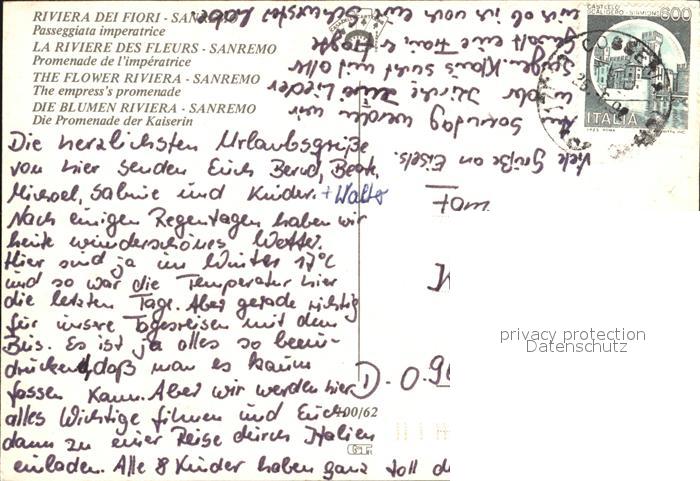 RIVIERA DEI FIORI - SANREMO
Passeggiata imperatrice
LA RIVIERE DES FLEURS - SANREMO
Promenade de l'impératrice
THE FLOWER RIVIERA - SANREMO
The empress's promenade
DIE BLUMEN RIVIERA - SANREMO
Die Promenade der Kaiserin
CASTELLO
SCALIGERO - SIRMIONE
600
ITALIA
Die herzlichsten Urlaubsgrüße
von hier senden Euch Bernd, Beate,
Michael, Sabine und Kinder. + Walter
Nach einigen Regentagen haben wir
heute wunderschönes Wetter.
Hier sind ja im Winter 17°C
und so war die Temperatur hier
die letzten Tage. Aber gerade richtig
für unsere Tagesreisen mit dem
Bus. Es ist ja alles so beein-
druckend, daß man es kaum
fassen kann. Aber wir werden hier
alles Wichtige filmen und Euch
dann zu einer Reise durch Italien
einladen. Alle 8 Kinder haben ganz toll
Viele Grüße an Eisels.
Am Sonntag werden wir
in der Kirche zwei Lieder
singen. Klaus sucht und
eine Frau, fragte
uns ob ich noch eine Schwester habe
Fam
D-O.9
400/62
privacy protection
Datenschutz